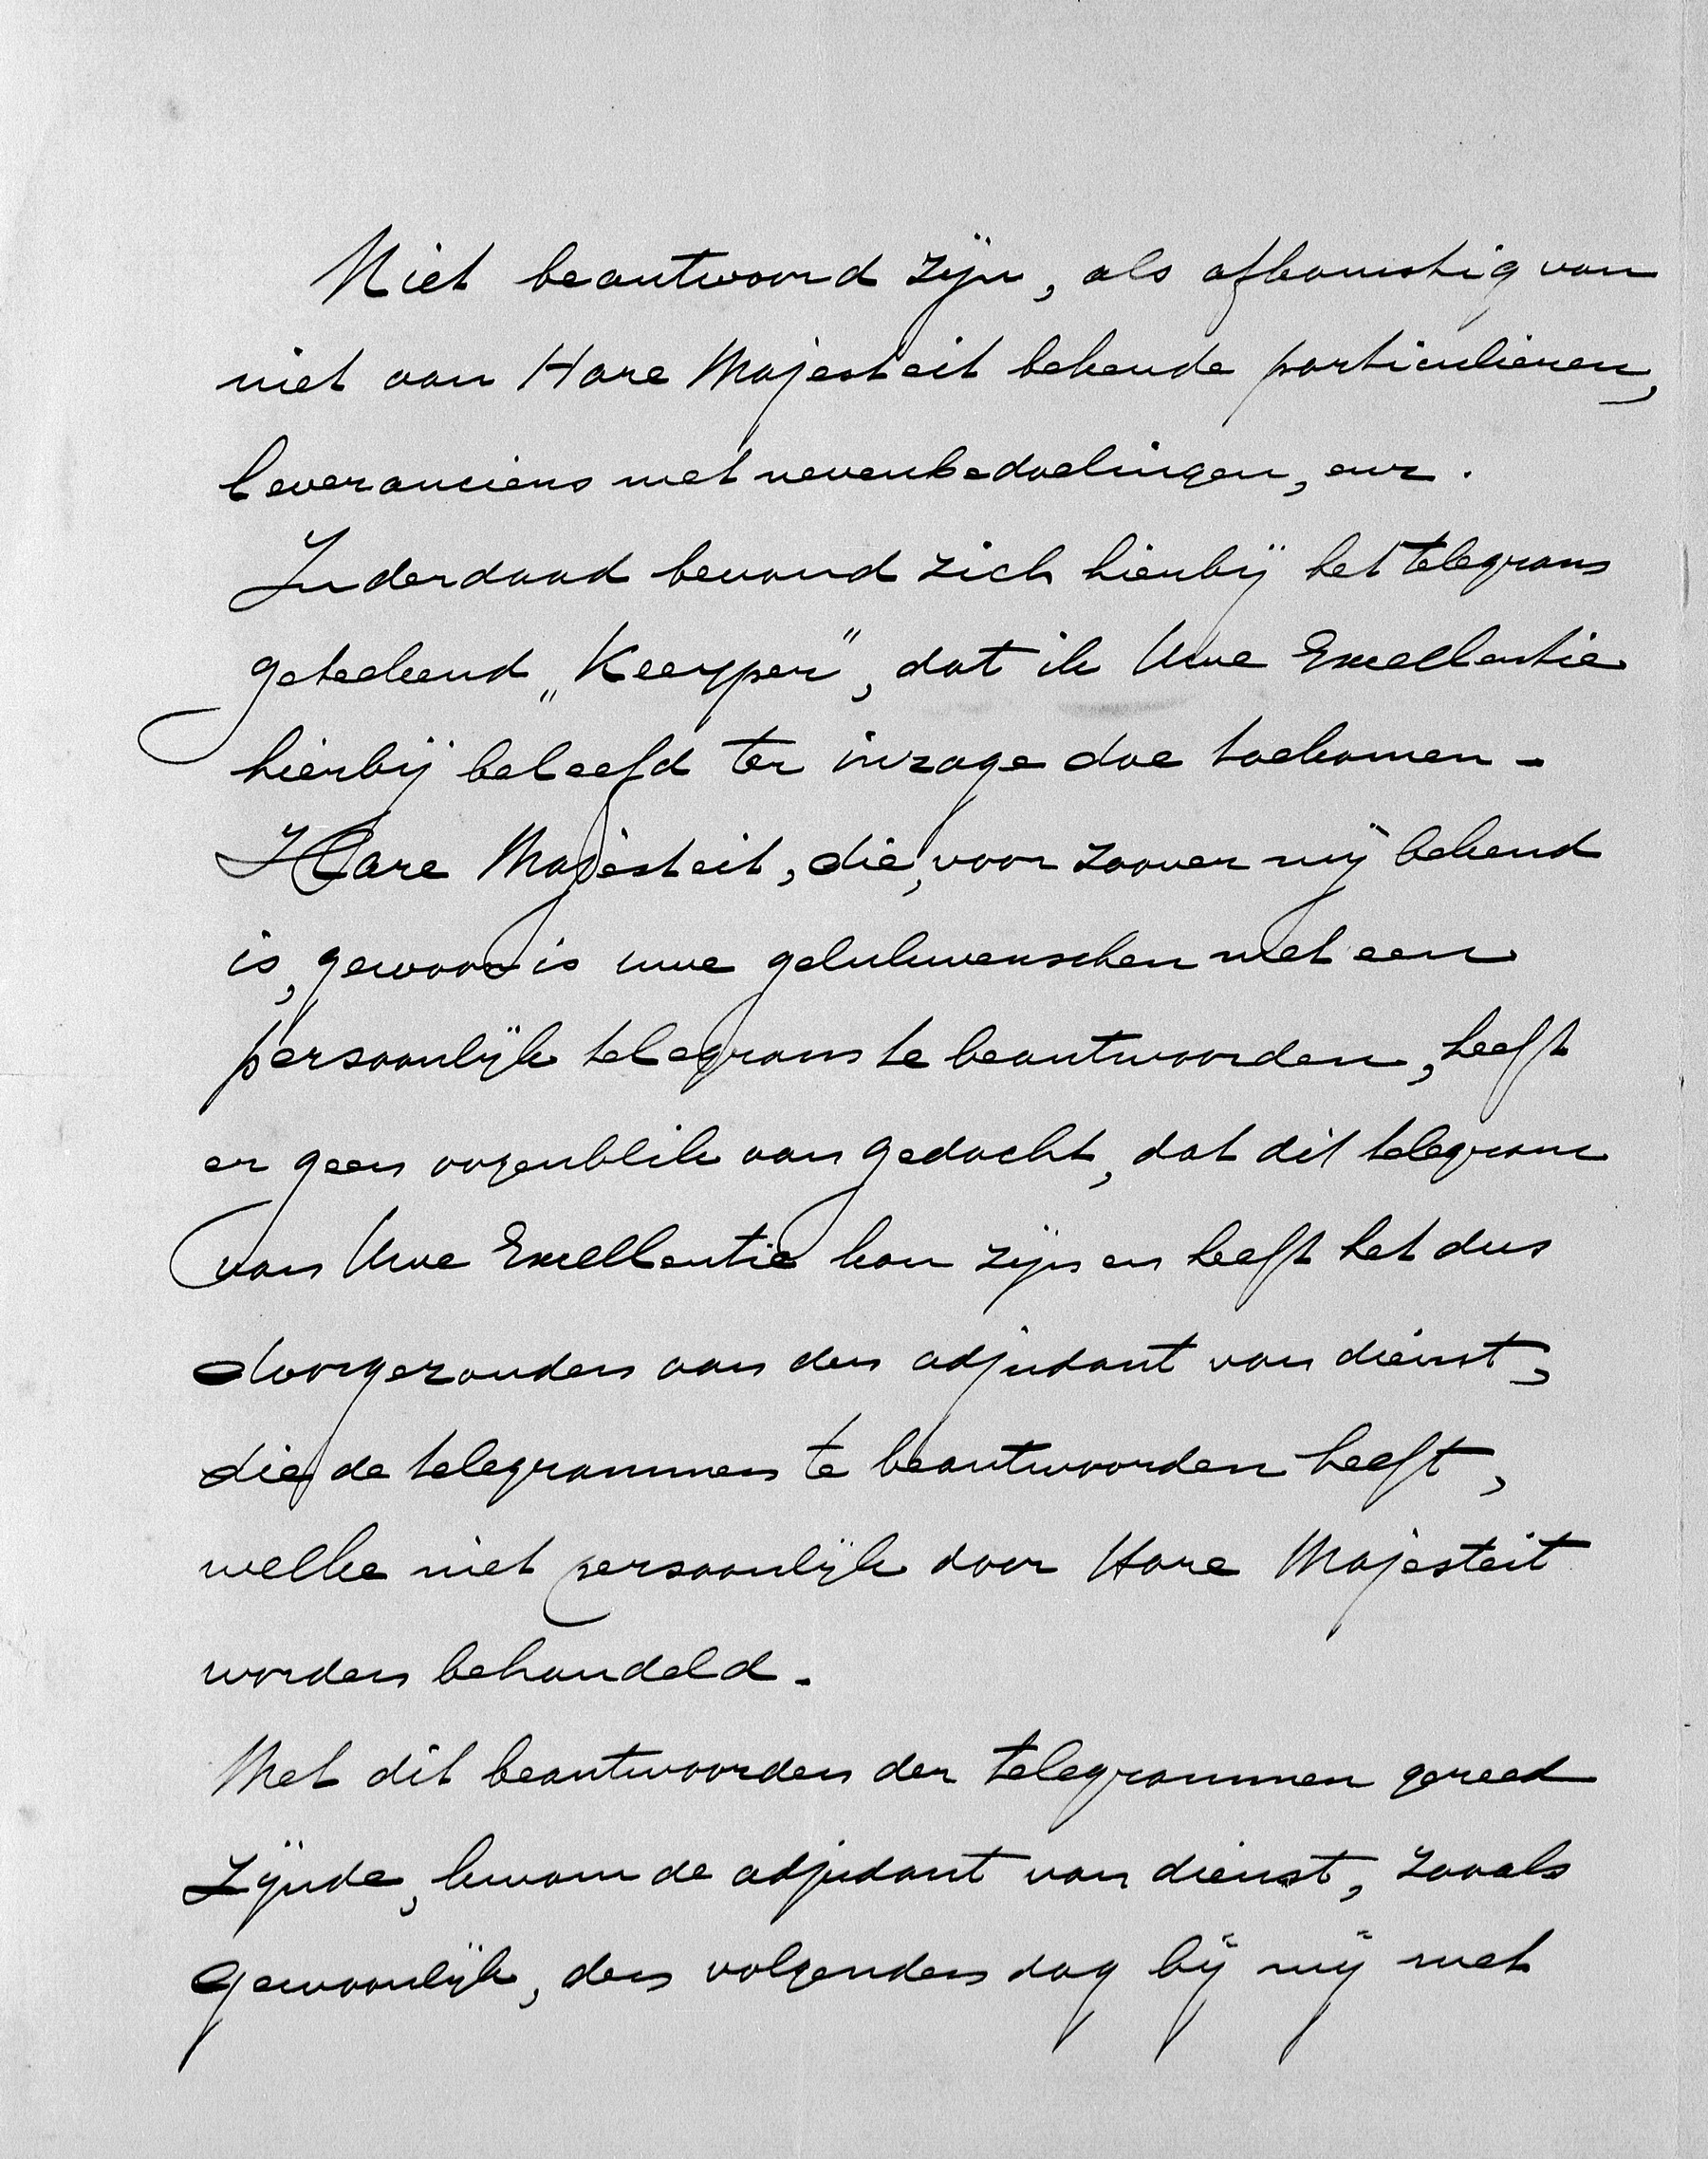 Niet beantwoord zijn, als afkomstig van
niet aan Hare Majesteit bekende particulieren,
leveranciers met nevenbedoelingen, enz.
Inderdaad bevond zich hierbij het telegram
geteekend „Keeyper”, dat ik Uwe Excellentie
hierbij beleefd ter inzage doe toekomen.
Hare Majesteit, die, voor zoover mij bekend
is, gewoon is uwe gelukwenschen met een
persoonlijk telegram te beantwoorden, heeft
er geen oogenblik aan gedacht, dat dit telegram
van Uwe Excellentie kon zijn en heeft het dus
doorgezonden aan den adjudant van dienst,
die de telegrammen te beantwoorden heeft,
welke niet persoonlijk door Hare Majesteit
worden behandeld.
Met dit beantwoorden der telegrammen gereed
zijnde, kwam de adjudant van dienst, zooals
gewoonlijk, den volgenden dag bij mij met